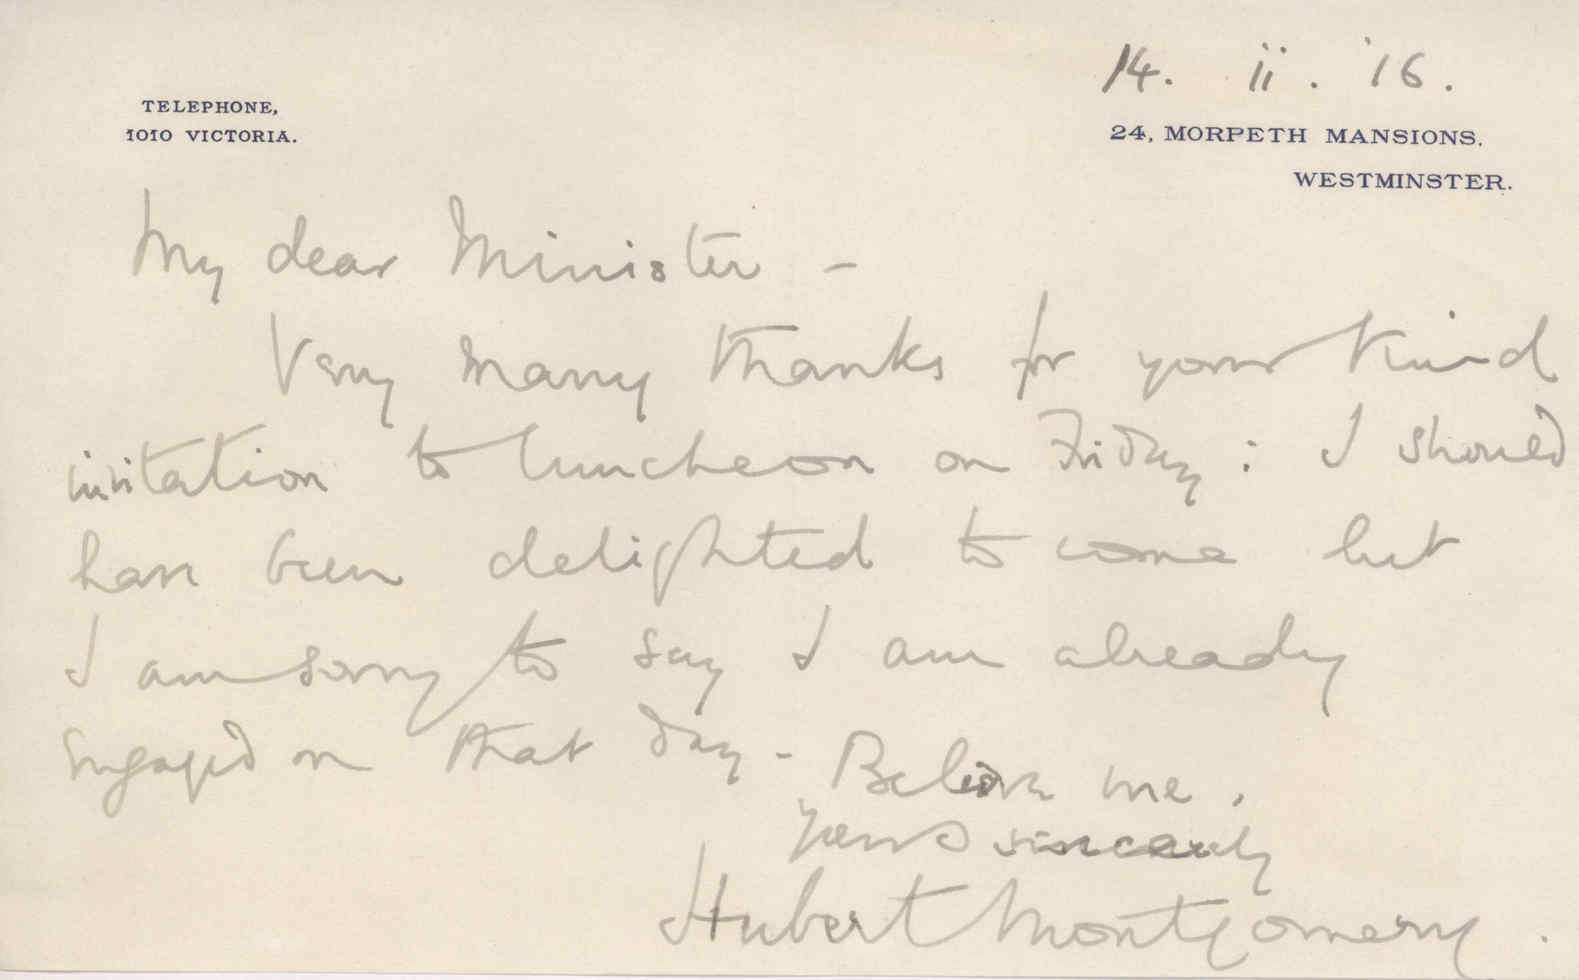 14. ii. '16.
TELEPHONE,
1010 VICTORIA.
24, MORPETH MANSIONS.
WESTMINSTER.
My dear Minister –
Very many thanks for your kind
invitation to luncheon on Friday : I should
have been delighted to come but
I am sorry to say I am already
engaged on that day – Believe me,
yours sincerely
Hubert Montgomery.